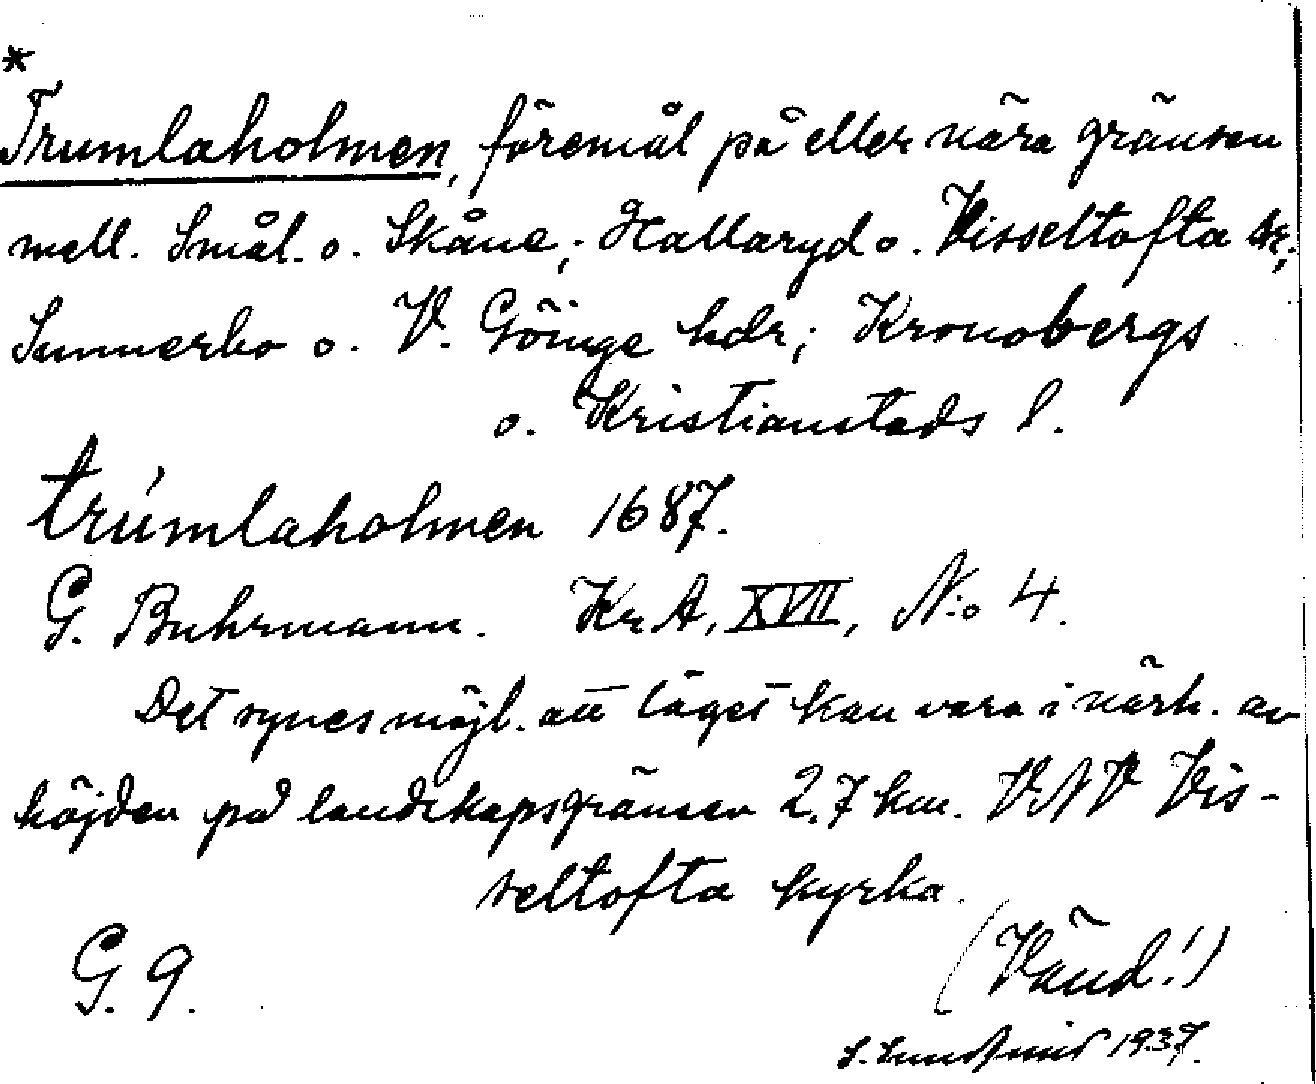 *
Trumlaholmen, föremål på eller nära gränsen
mell. Smål. o. Skåne; Hallaryd o. Visseltofta sr;
Sunnerbo o. V. Göinge hdr; Kronobergs
o. Kristianstads l.
trúmlaholmen 1687.
G. Buhrmann. KrA, XVII, N:o 4.
Det synes möjl. att läget kan vara i närh. av
höjden på landskapsgränsen 2,7 km. VNV Vis-
seltofta kyrka.
(Vänd!)
G. 9.
1937.